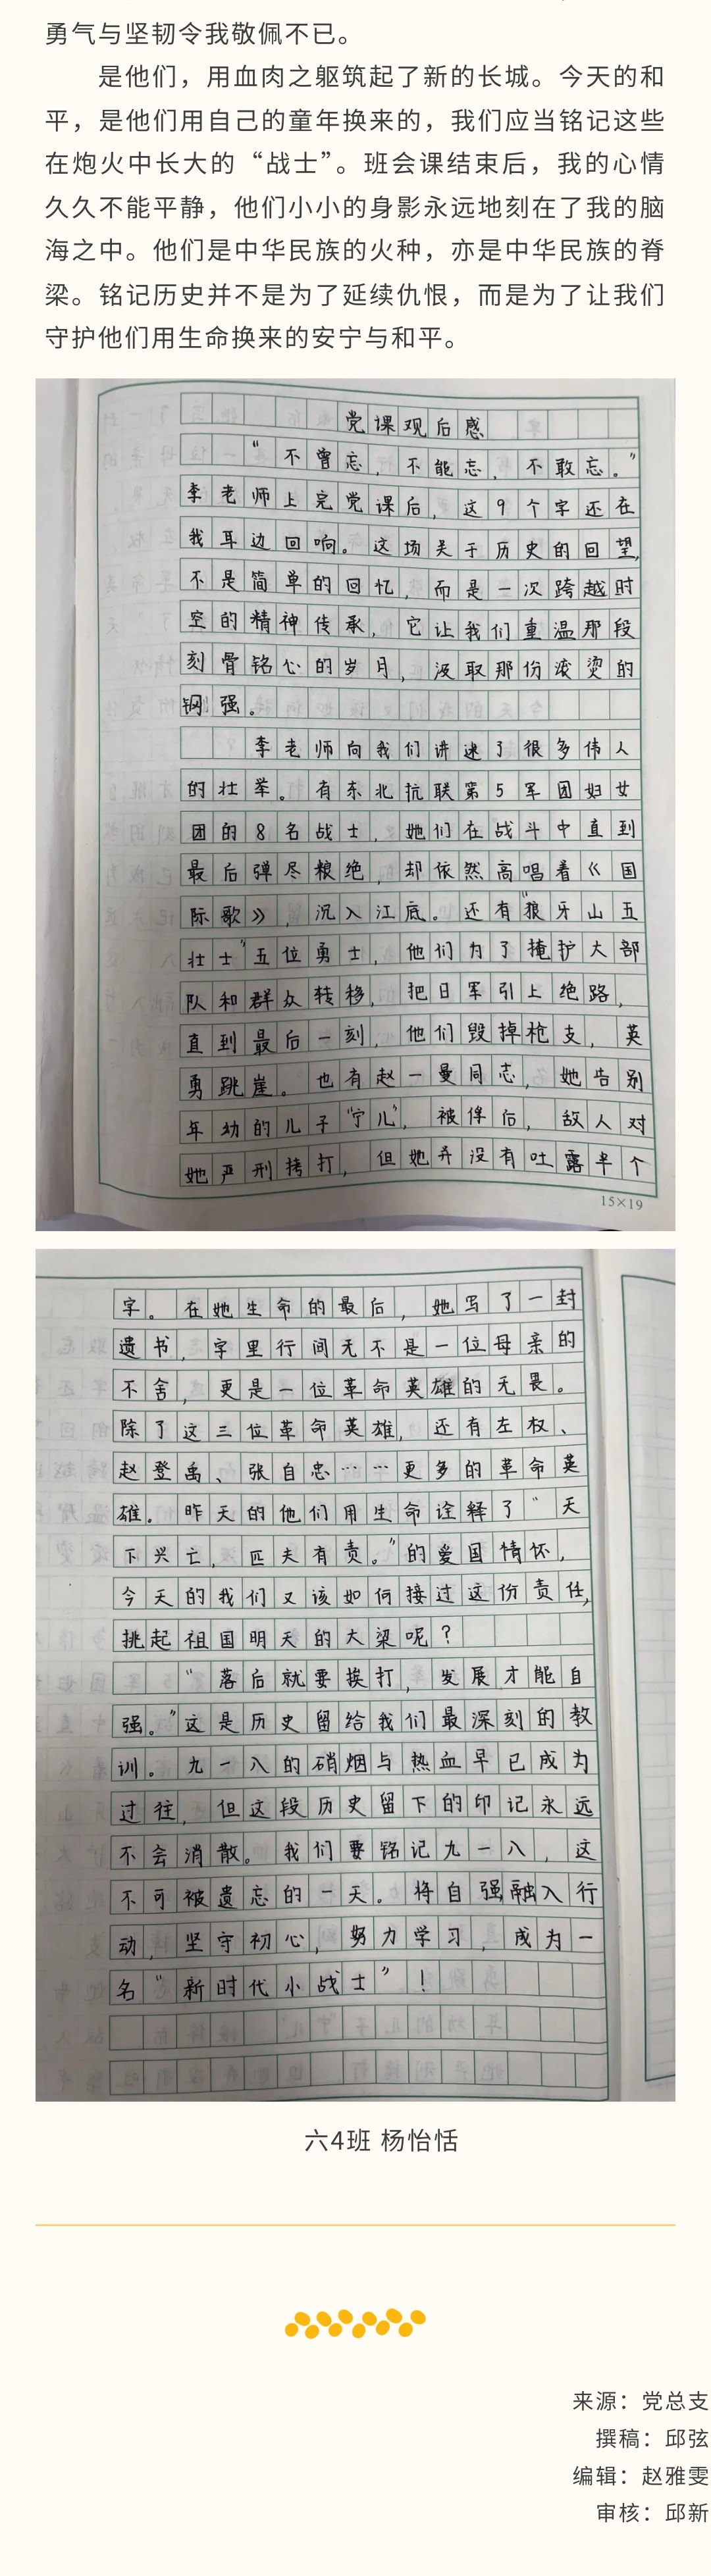 勇气与坚韧令我敬佩不已。
是他们，用血肉之躯筑起了新的长城。今天的和
平，是他们用自己的童年换来的，我们应当铭记这些
在炮火中长大的“战士”。班会课结束后，我的心情
久久不能平静，他们小小的身影永远地刻在了我的脑
海之中。他们是中华民族的火种，亦是中华民族的脊
梁。铭记历史并不是为了延续仇恨，而是为了让我们
守护他们用生命换来的安宁与和平。
党课观后感
“不曾忘，不能忘，不敢忘。”
李老师上完党课后，这9个字还在
我耳边回响。这场关于历史的回望，
不是简单的回忆，而是一次跨越时
空的精神传承，它让我们重温那段
刻骨铭心的岁月，汲取那份滚烫的
钢强。
李老师向我们讲述了很多伟人
的壮举。有东北抗联第5军团妇女
团的8名战士，她们在战斗中直到
最后弹尽粮绝，却依然高唱着《国
际歌》，沉入江底。还有“狼牙山五
壮士”五位勇士，他们为了掩护大部
队和群众转移，把日军引上绝路，
直到最后一刻，他们毁掉枪支，英
勇跳崖。也有赵一曼同志，她告别
年幼的儿子“宁儿”，被俘后，敌人对
她严刑拷打，但她并没有吐露半个
15×19
字。在她生命的最后，她写了一封
遗书，字里行间无不是一位母亲的
不舍，更是一位革命英雄的无畏。
除了这三位革命英雄，还有左权、
赵登禹、张自忠……更多的革命英
雄。昨天的他们用生命诠释了“天
下兴亡，匹夫有责。”的爱国情怀，
今天的我们又该如何接过这份责任，
挑起祖国明天的大梁呢？
“落后就要挨打，发展才能自
强。”这是历史留给我们最深刻的教
训。九一八的硝烟与热血早已成为
过往，但这段历史留下的印记永远
不会消散。我们要铭记九一八，这
不可被遗忘的一天。将自强融入行
动，坚守初心，努力学习，成为一
名“新时代小战士”！
六4班 杨怡恬
来源：党总支
撰稿：邱弦
编辑：赵雅雯
审核：邱新